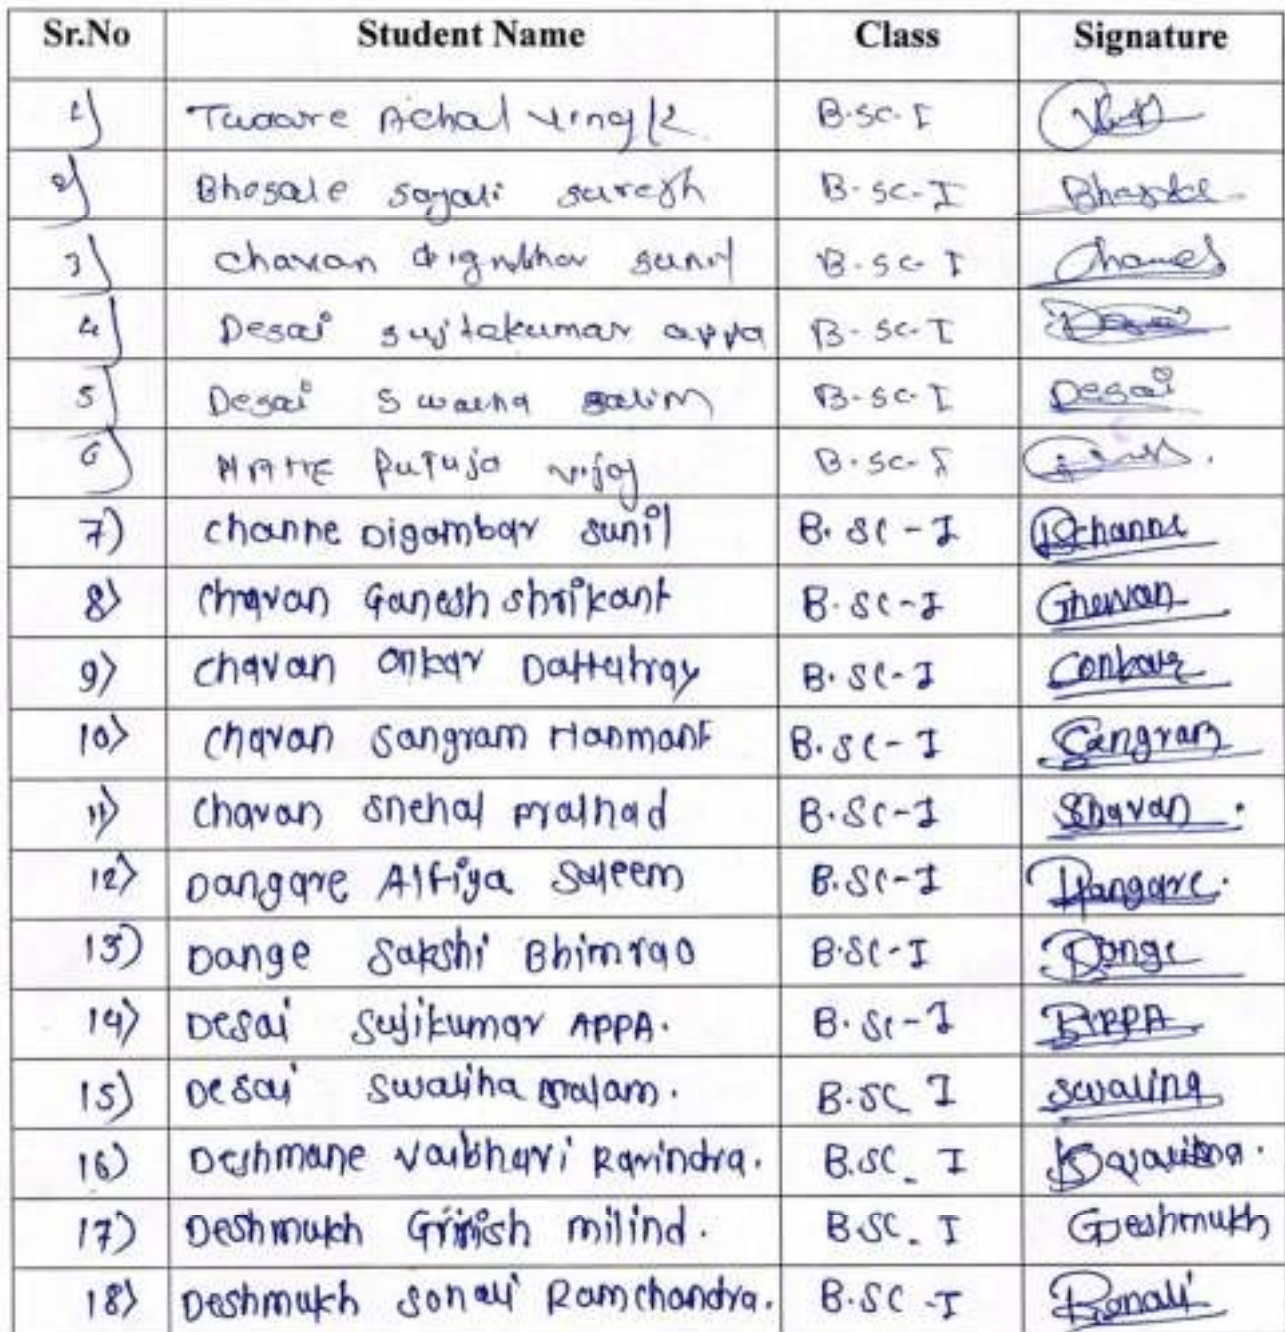 Sr.No Student Name Class Signature
1) Achal B.sc. I
2) Bhosale sayali suresh B-sc-I Bhosale
3) chavan sunil B.sc- I
4) Desai sujitakumar appa B-sc-I Desai
5) Desai salim B-sc-I Desai
6) MANE RuTuja vijay B.sc-I
7) channe Digambar sunil B.SC-I Dchanne
8) Chavan Ganesh shrikant B.SC-I
9) Chavan Onkar Dattatray B.SC-I
10) chavan sangram Hanmant B.SC-I Sangram
11) Chavan Snehal pralhad B.SC-I Shavan.
12) Dangare Alfiya Saleem B.SC-I Dangare.
13) Dange Sakshi Bhimrao B.SC-I Dange
14) Desai Sujikumar APPA. B.SC-I
15) Desai Swaliha B.SC I swaliha
16) Deshmane Vaibhavi Ravindra. B.SC_ I
17) Deshmukh Girish milind. B.SC_ I GDeshmukh
18) Deshmukh sonali Ramchandra. B.SC-I